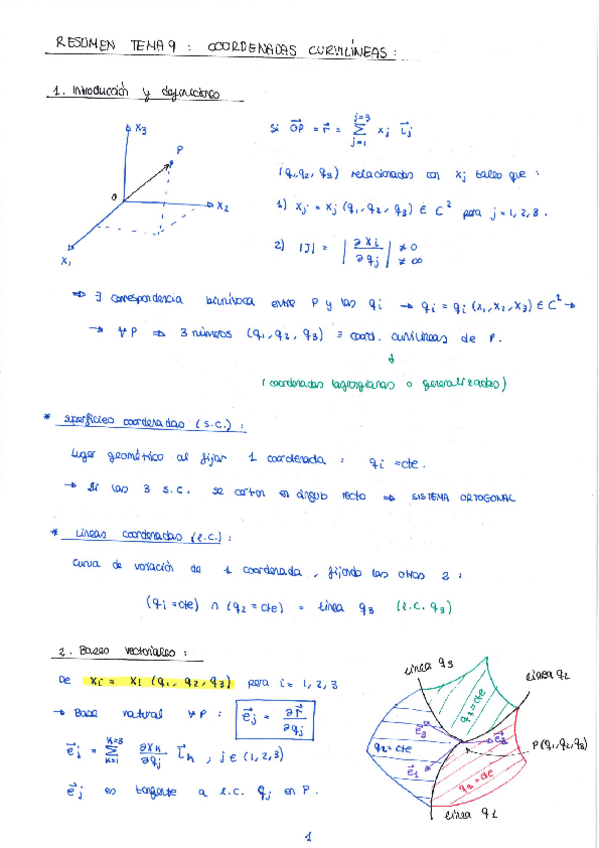 RESUMEN TEMA 9 : COORDENADAS CURVILÍNEAS :
1. Introducción y definiciones
x₃
P
O
x₂
x₁
Si O⃗P = r⃗ = Σ_{j=1}^{j=3} xⱼ i⃗ⱼ
(q₁, q₂, q₃) relacionados con xⱼ tales que :
1) xⱼ = xⱼ (q₁, q₂, q₃) ∈ C² para j = 1, 2, 3 .
2) |J| = |∂xᵢ/∂qⱼ| ≠ 0 ≠ ∞
⇒ ∃ correspondencia biunívoca entre P y las qᵢ → qᵢ = qᵢ (x₁, x₂, x₃) ∈ C² →
→ ∀P ⇒ 3 números (q₁, q₂, q₃) ≡ coord. curvilíneas de P.
↓
(coordenadas lagrangianas o generalizadas)
* superficies coordenadas (s.c.) :
Lugar geométrico al fijar 1 coordenada : qᵢ = cte.
→ Si las 3 s.c. se cortan en ángulo recto ⇒ SISTEMA ORTOGONAL
* Líneas coordenadas (l.c.) :
Curva de variación de 1 coordenada , fijando las otras 2 :
(q₁ = cte) ∩ (q₂ = cte) = línea q₃ (l.c. q₃)
2. Bases vectoriales :
De xᵢ = xᵢ (q₁, q₂, q₃) para i = 1, 2, 3
→ Base natural ∀P : e⃗ⱼ = ∂r⃗/∂qⱼ
e⃗ⱼ = Σ_{k=1}^{k=3} ∂xₖ/∂qⱼ i⃗ₖ , j ∈ (1, 2, 3)
e⃗ⱼ es tangente a l.c. qⱼ en P.
línea q₃
línea q₂
q₁ = cte
e⃗₃
e⃗₂
q₂ = cte
P (q₁, q₂, q₃)
e⃗₁
q₃ = cte
línea q₁
1